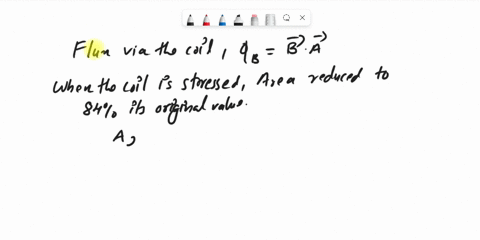 Flux via the coil, ϕ_B = B⃗·A⃗
When the coil is stressed, Area reduced to
84% its original value.
A,